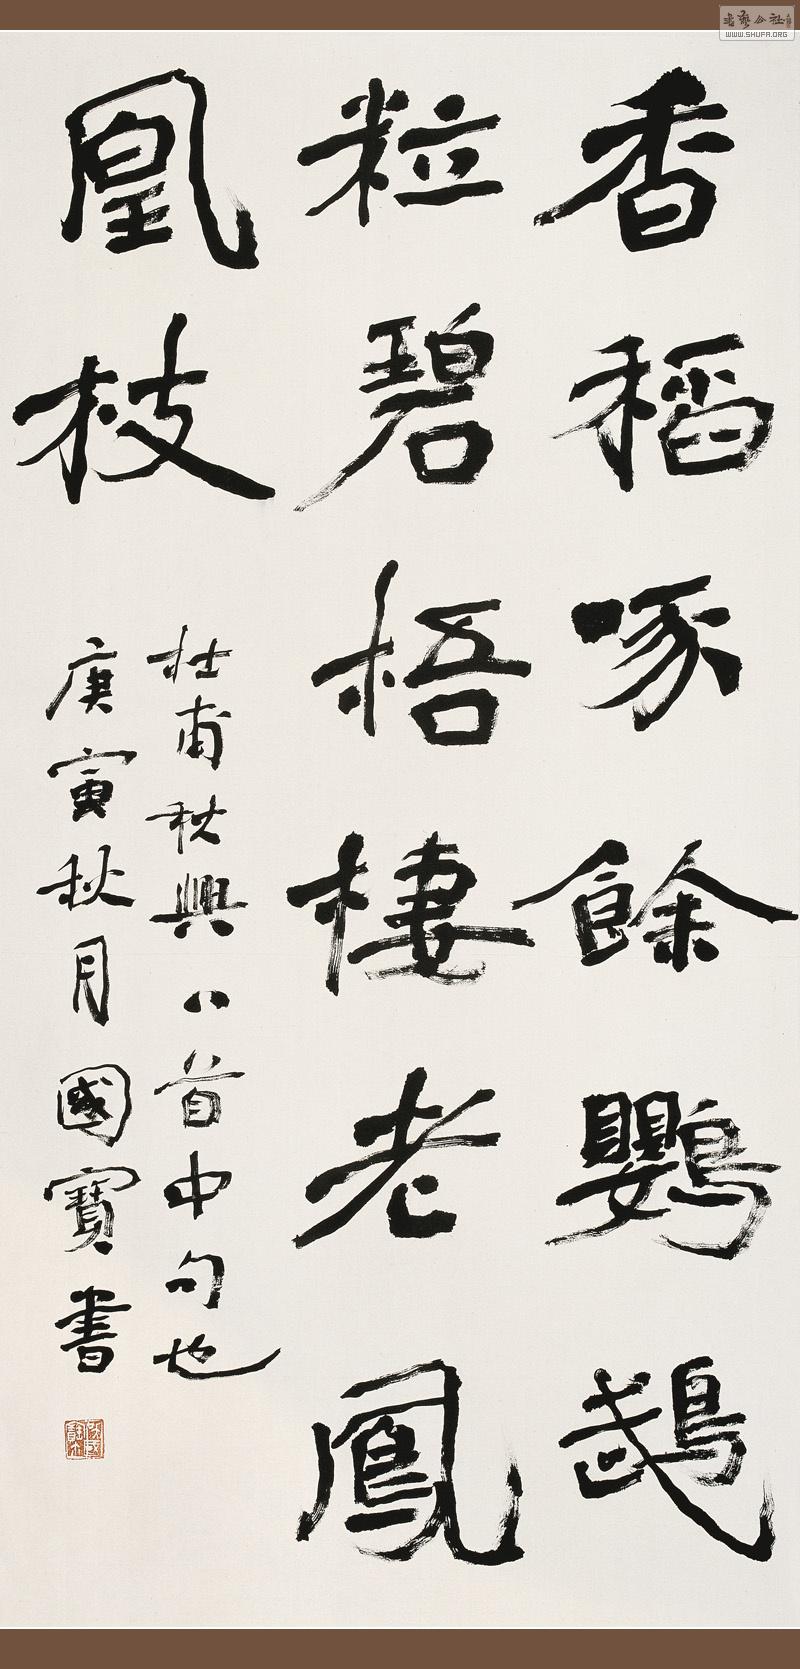 香稻啄餘鸚鵡
粒碧梧棲老鳳
凰枝
杜甫秋興八首中句也
庚寅秋月國寶書
WWW.SHUFA.ORG